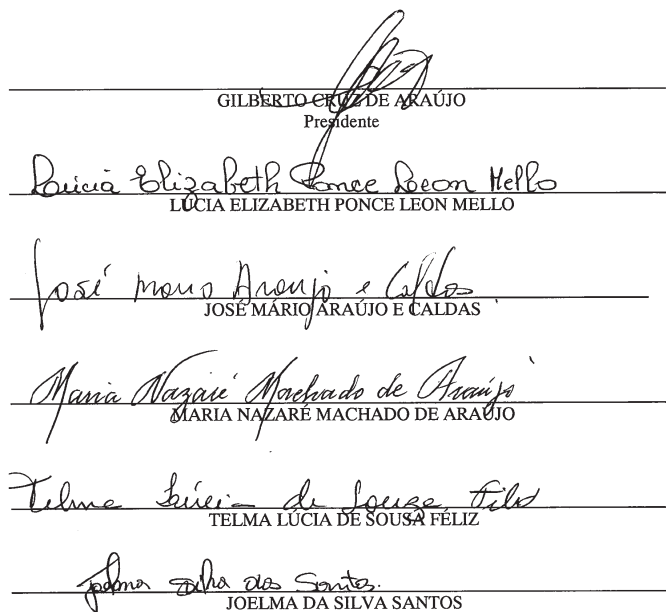 GILBERTO CRUZ DE ARAÚJO
Presidente
Lúcia Elizabeth Ponce Leon Mello
LÚCIA ELIZABETH PONCE LEON MELLO
José Mario Araujo e Caldas
JOSÉ MÁRIO ARAÚJO E CALDAS
Maria Nazaré Machado de Araújo
MARIA NAZARÉ MACHADO DE ARAÚJO
Telma Lúcia de Souza
TELMA LÚCIA DE SOUSA FÉLIZ
Joelma Silva dos Santos.
JOELMA DA SILVA SANTOS